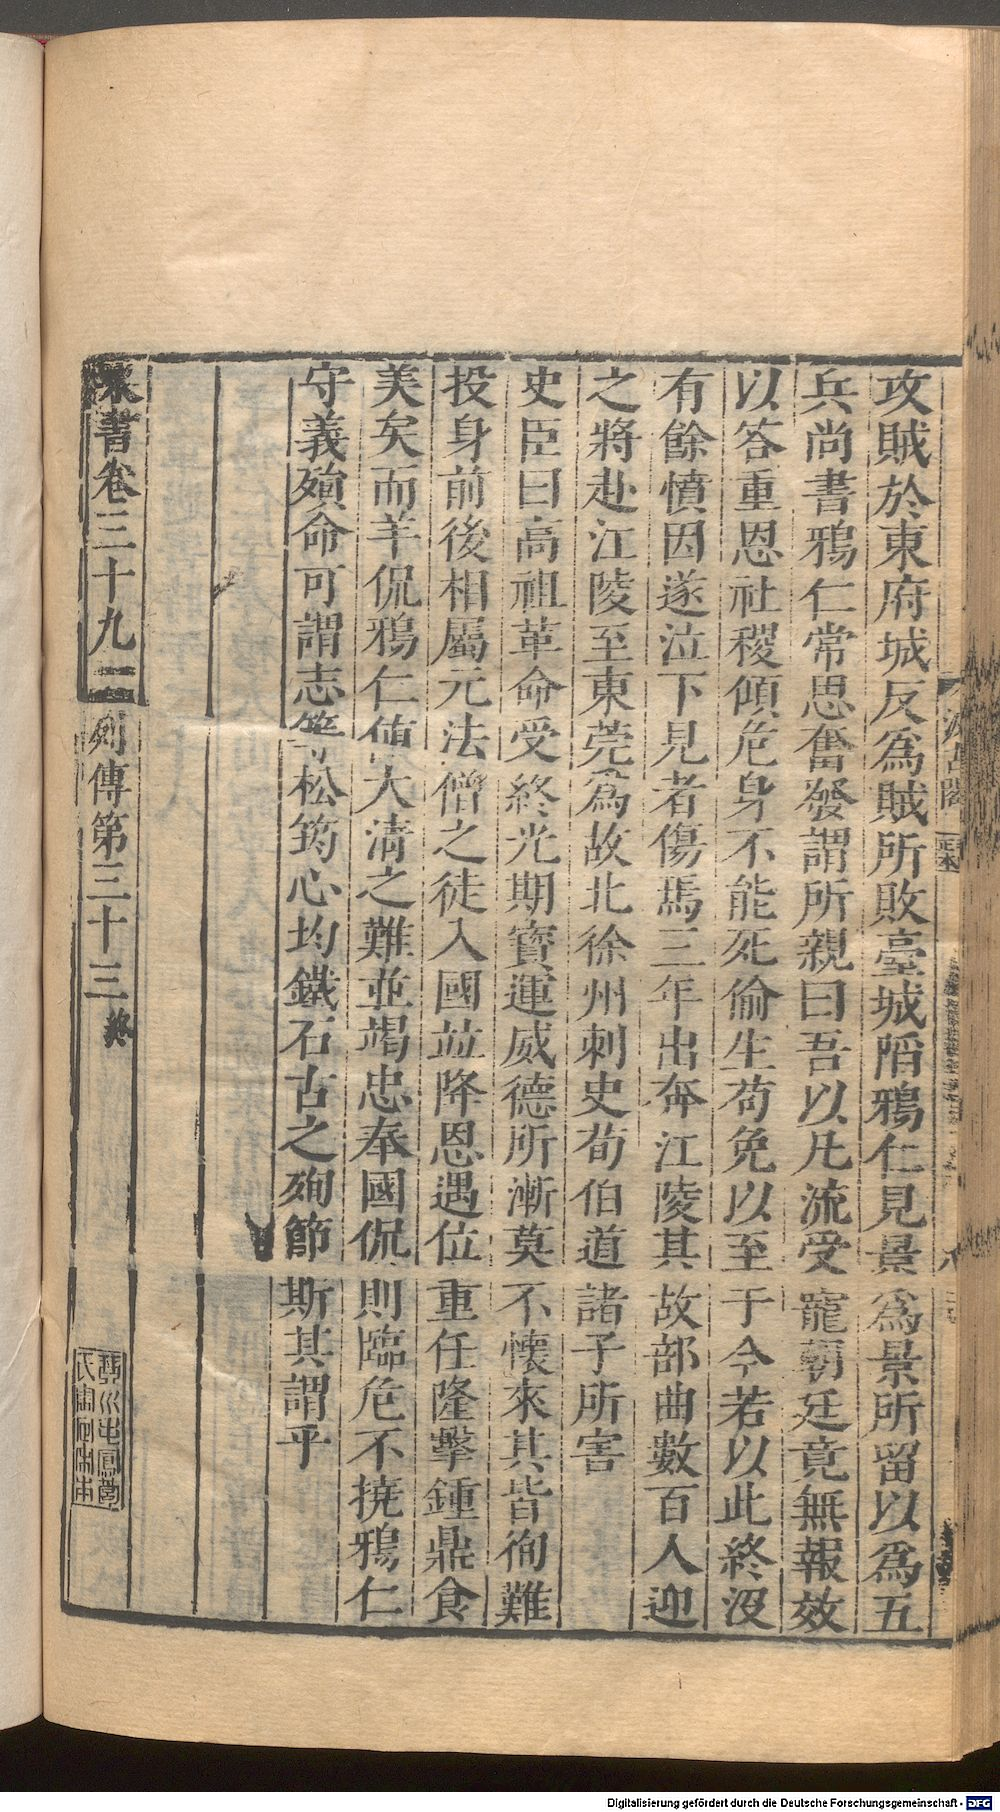 攻賊於東府城反爲賊所敗臺城陷鴉仁見景爲景所留以爲五
兵尚書鴉仁常思奮發謂所親曰吾以凡流受寵朝廷竟無報效
以答重恩社稷傾危身不能死偷生苟免以至于今若以此終沒
有餘憤因遂泣下見者傷焉三年出奔江陵其故部曲數百人迎
之將赴江陵至東莞爲故北徐州刺史荀伯道諸子所害
史臣曰高祖革命受終光期寶運威德所漸莫不懷來其皆徇難
投身前後相屬元法僧之徒入國並降恩遇位重任隆擊鍾鼎食
美矣而羊侃鴉仁值大清之難並竭忠奉國侃則臨危不撓鴉仁
守義殞命可謂志等松筠心均鐵石古之殉節斯其謂乎
梁書卷三十九 列傳第三十三 終
Digitalisierung gefördert durch die Deutsche Forschungsgemeinschaft - DFG